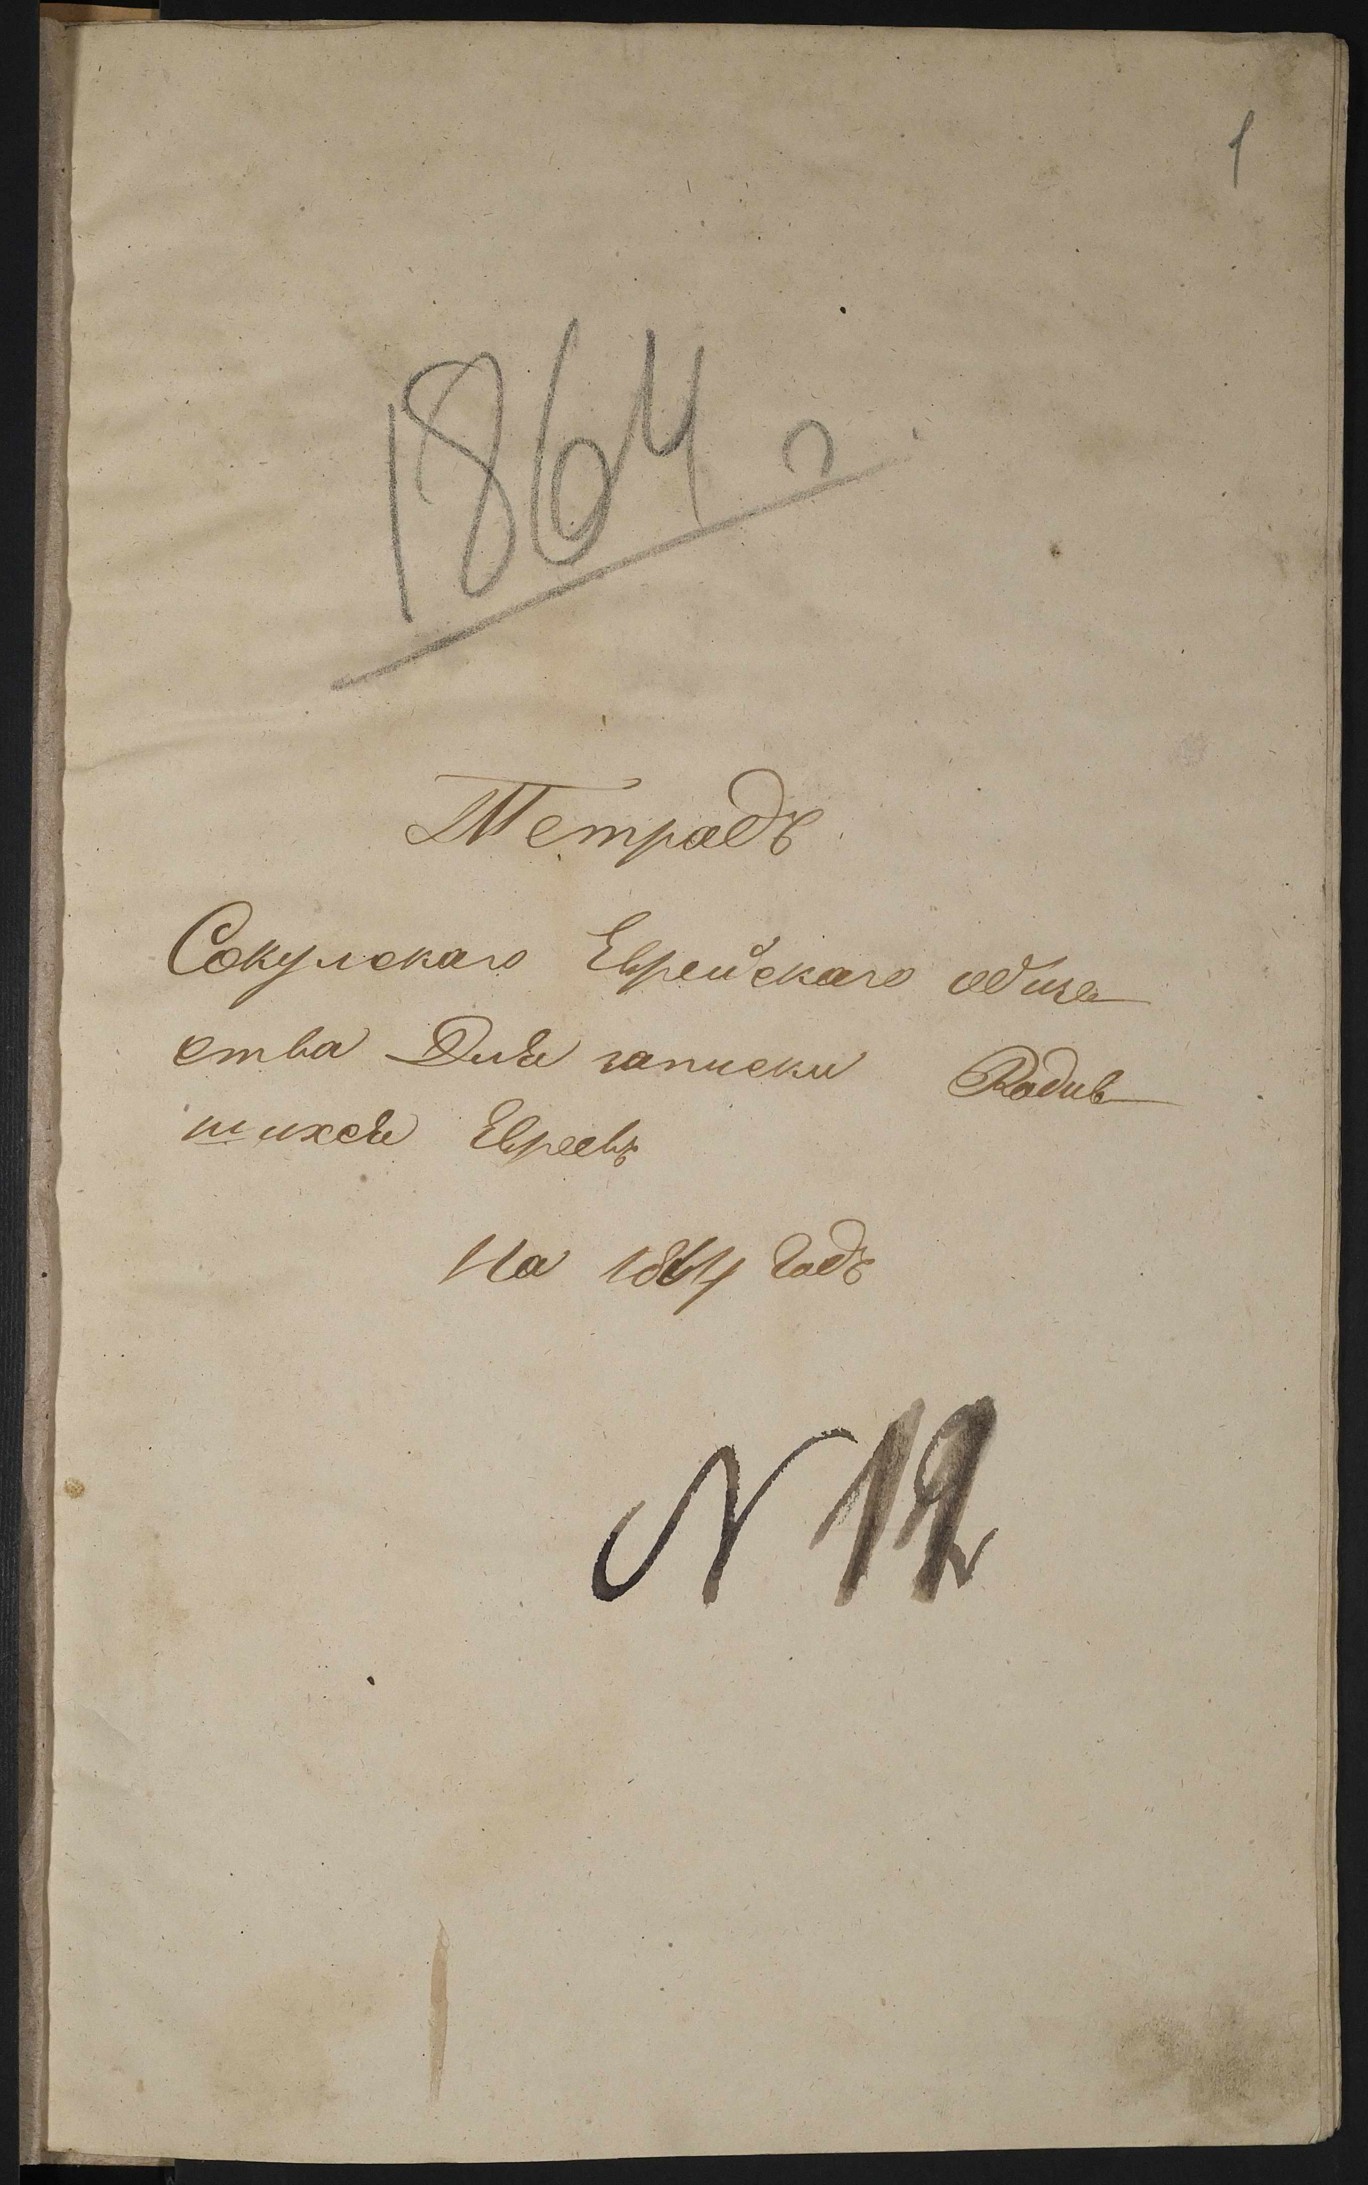 1
1864 г
Тетрадь
Сокулскаго Еврейскаго обще
ства Для записки Родив
шихся Евреевъ
На 1864 Годъ
N 12